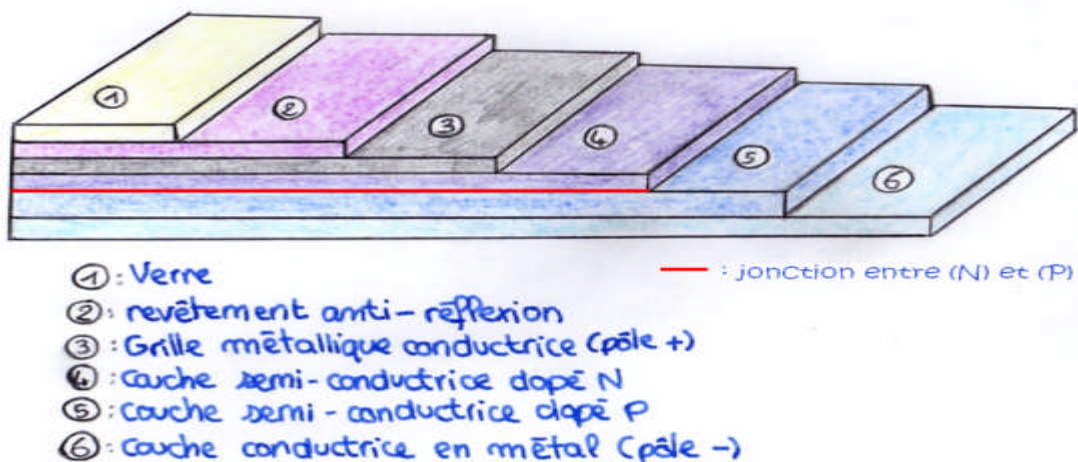 1
2
3
4
5
6
: jonction entre (N) et (P)
1 : Verre
2 : revêtement anti-réflexion
3 : Grille métallique conductrice (pôle +)
4 : couche semi-conductrice dopé N
5 : couche semi-conductrice dopé P
6 : couche conductrice en métal (pôle -)